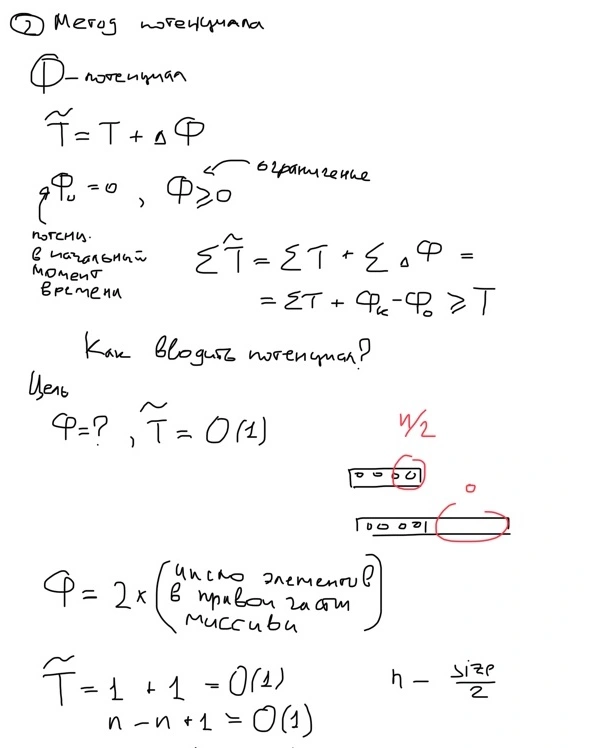 ② Метод потенциала
Φ – потенциал
T̃ = T + △Φ
Φ₀ = 0 , Φ ⩾ 0 ограничение
потенц.
в начальный
момент
времени
∑T̃ = ∑T + ∑△Φ =
= ∑T + Φₖ – Φ₀ ⩾ T
Как вводить потенциал?
Цель
Φ = ? , T̃ = O(1)
n/2
0
Φ = 2 × (число элементов
в правой части
массива)
T̃ = 1 + 1 = O(1)
n – size/2
n – n + 1 = O(1)